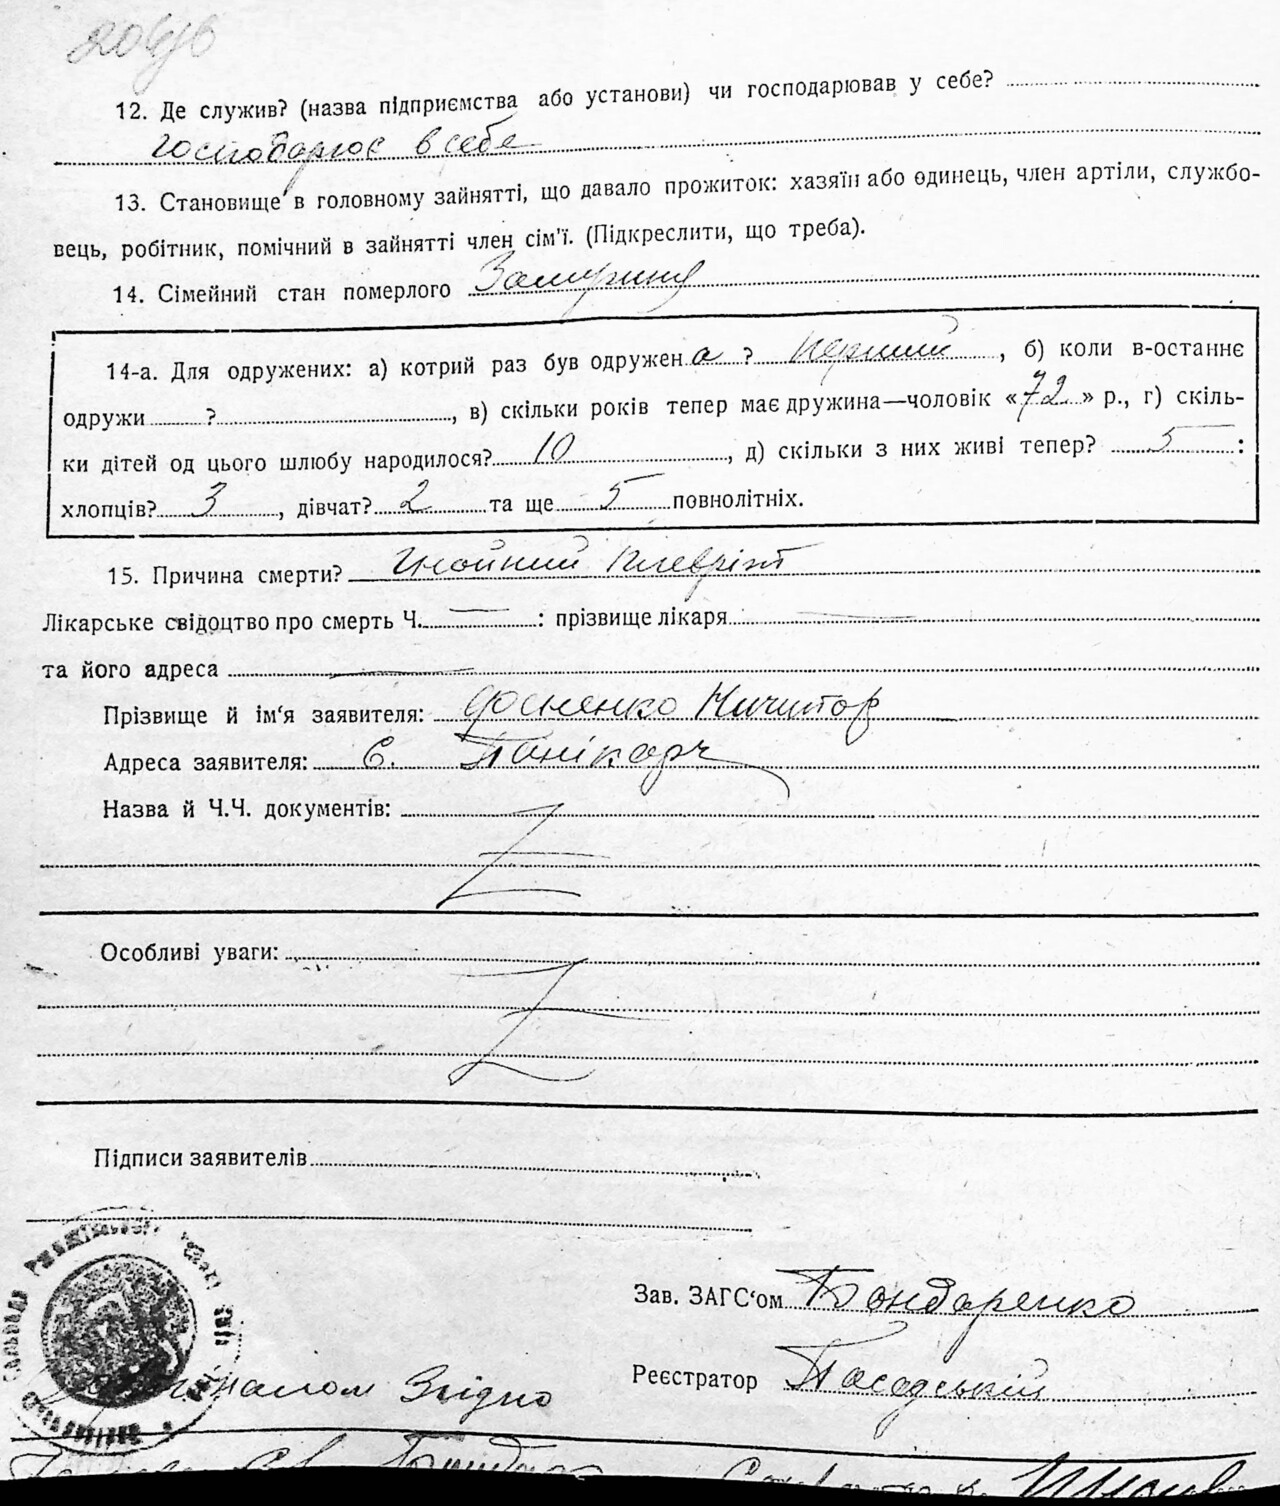 12. Де служив? (назва підприємства або установи) чи господарював у себе?
господарює в себе
13. Становище в головному зайнятті, що давало прожиток: хазяїн або одинець, член артіли, службо-
вець, робітник, помічний в зайнятті член сім'ї. (Підкреслити, що треба).
14. Сімейний стан померлого Замужня
14-а. Для одружених: а) котрий раз був одружен а ? перший, б) коли в-останнє
одружи ?, в) скільки років тепер має дружина—чоловік «72» р., г) скіль-
ки дітей од цього шлюбу народилося? 10, д) скільки з них живі тепер? 5:
хлопців? 3, дівчат? 2 та ще 5 повнолітніх.
15. Причина смерти? Гнойний плеврiт
Лікарське свідоцтво про смерть Ч. — : прізвище лікаря —
та його адреса —
Прізвище й ім'я заявителя: Ничипор
Адреса заявителя: С.
Назва й Ч.Ч. документів:
Особливі уваги:
Підписи заявителів
Зав. ЗАГС'ом Бондаренко
Реєстратор Посадський
Згідно